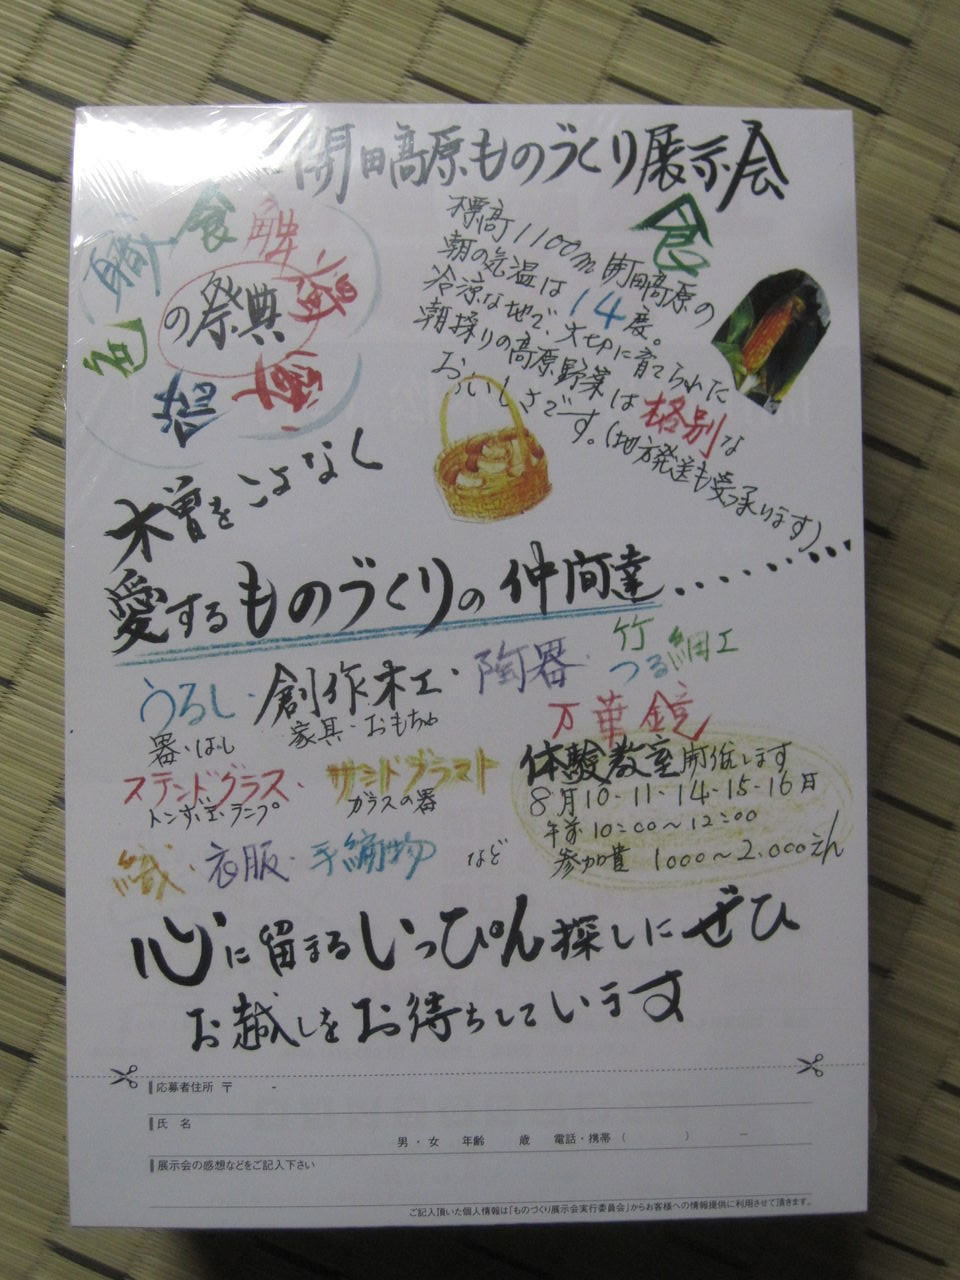 開田高原ものづくり展示会
職
食
触
感
の祭典
色
食
標高1100m 開田高原の
朝の気温は14度。
冷涼な地で、大切に育てられた
朝採りの高原野菜は格別な
おいしさです。(地方発送も受け承ります)
木曽をこよなく
愛するものづくりの仲間達........
うるし・創作木工・陶器・竹
つる細工
器・はし
家具・おもちゃ
万華鏡
ステンドグラス・サンドブラスト
トンボ玉・ランプ
ガラスの器
織・衣服・手編物 など
体験教室開催します
8月10-11-14-15-16日
午前10:00〜12:00
参加費 1000〜2,000えん
心に留まるいっぴん探しにぜひ
お越しをお待ちしています
応募者住所 〒 -
氏 名
男・女 年齢 歳 電話・携帯( ) −
展示会の感想などをご記入下さい
ご記入頂いた個人情報は「ものづくり展示会実行委員会」からお客様への情報提供に利用させて頂きます。